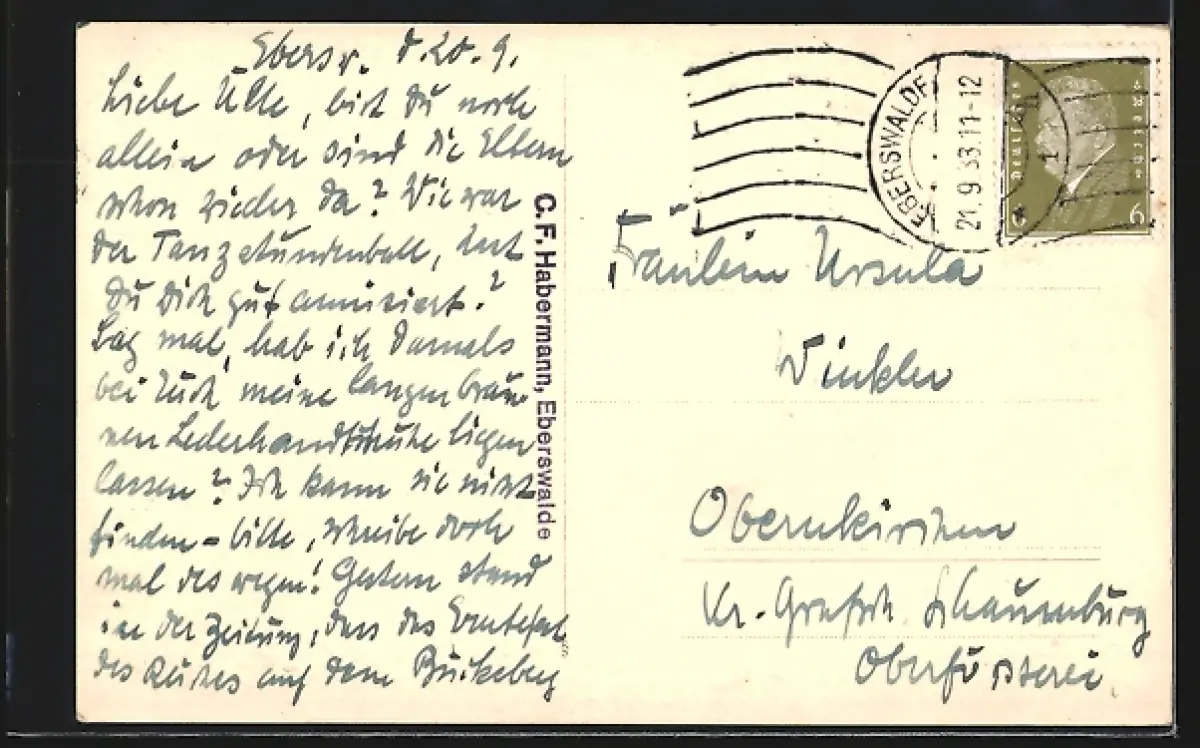 Ebersw. d. 20. 9.
Liebe Ulle, bist Du noch
allein oder sind die Eltern
schon wieder da? Wie war
der Tanzstundenball, hast
Du Dich gut amüsiert?
Sag mal, hab ich damals
bei Euch meine langen brau-
nen Lederhandschuhe liegen
lassen? Ich kann sie nicht
finden – bitte, schreibe doch
mal deswegen! Gestern stand
in der Zeitung, dass das Erntefest
des Reiches auf dem Bückeberg
C. F. Habermann, Eberswalde
EBERSWALDE
21.9.33.11-12
Deutsches Reich
6 6
Fräulein Ursula
Winkler
Obernkirchen
Kr. Grafsch. Schaumburg
Oberförsterei.